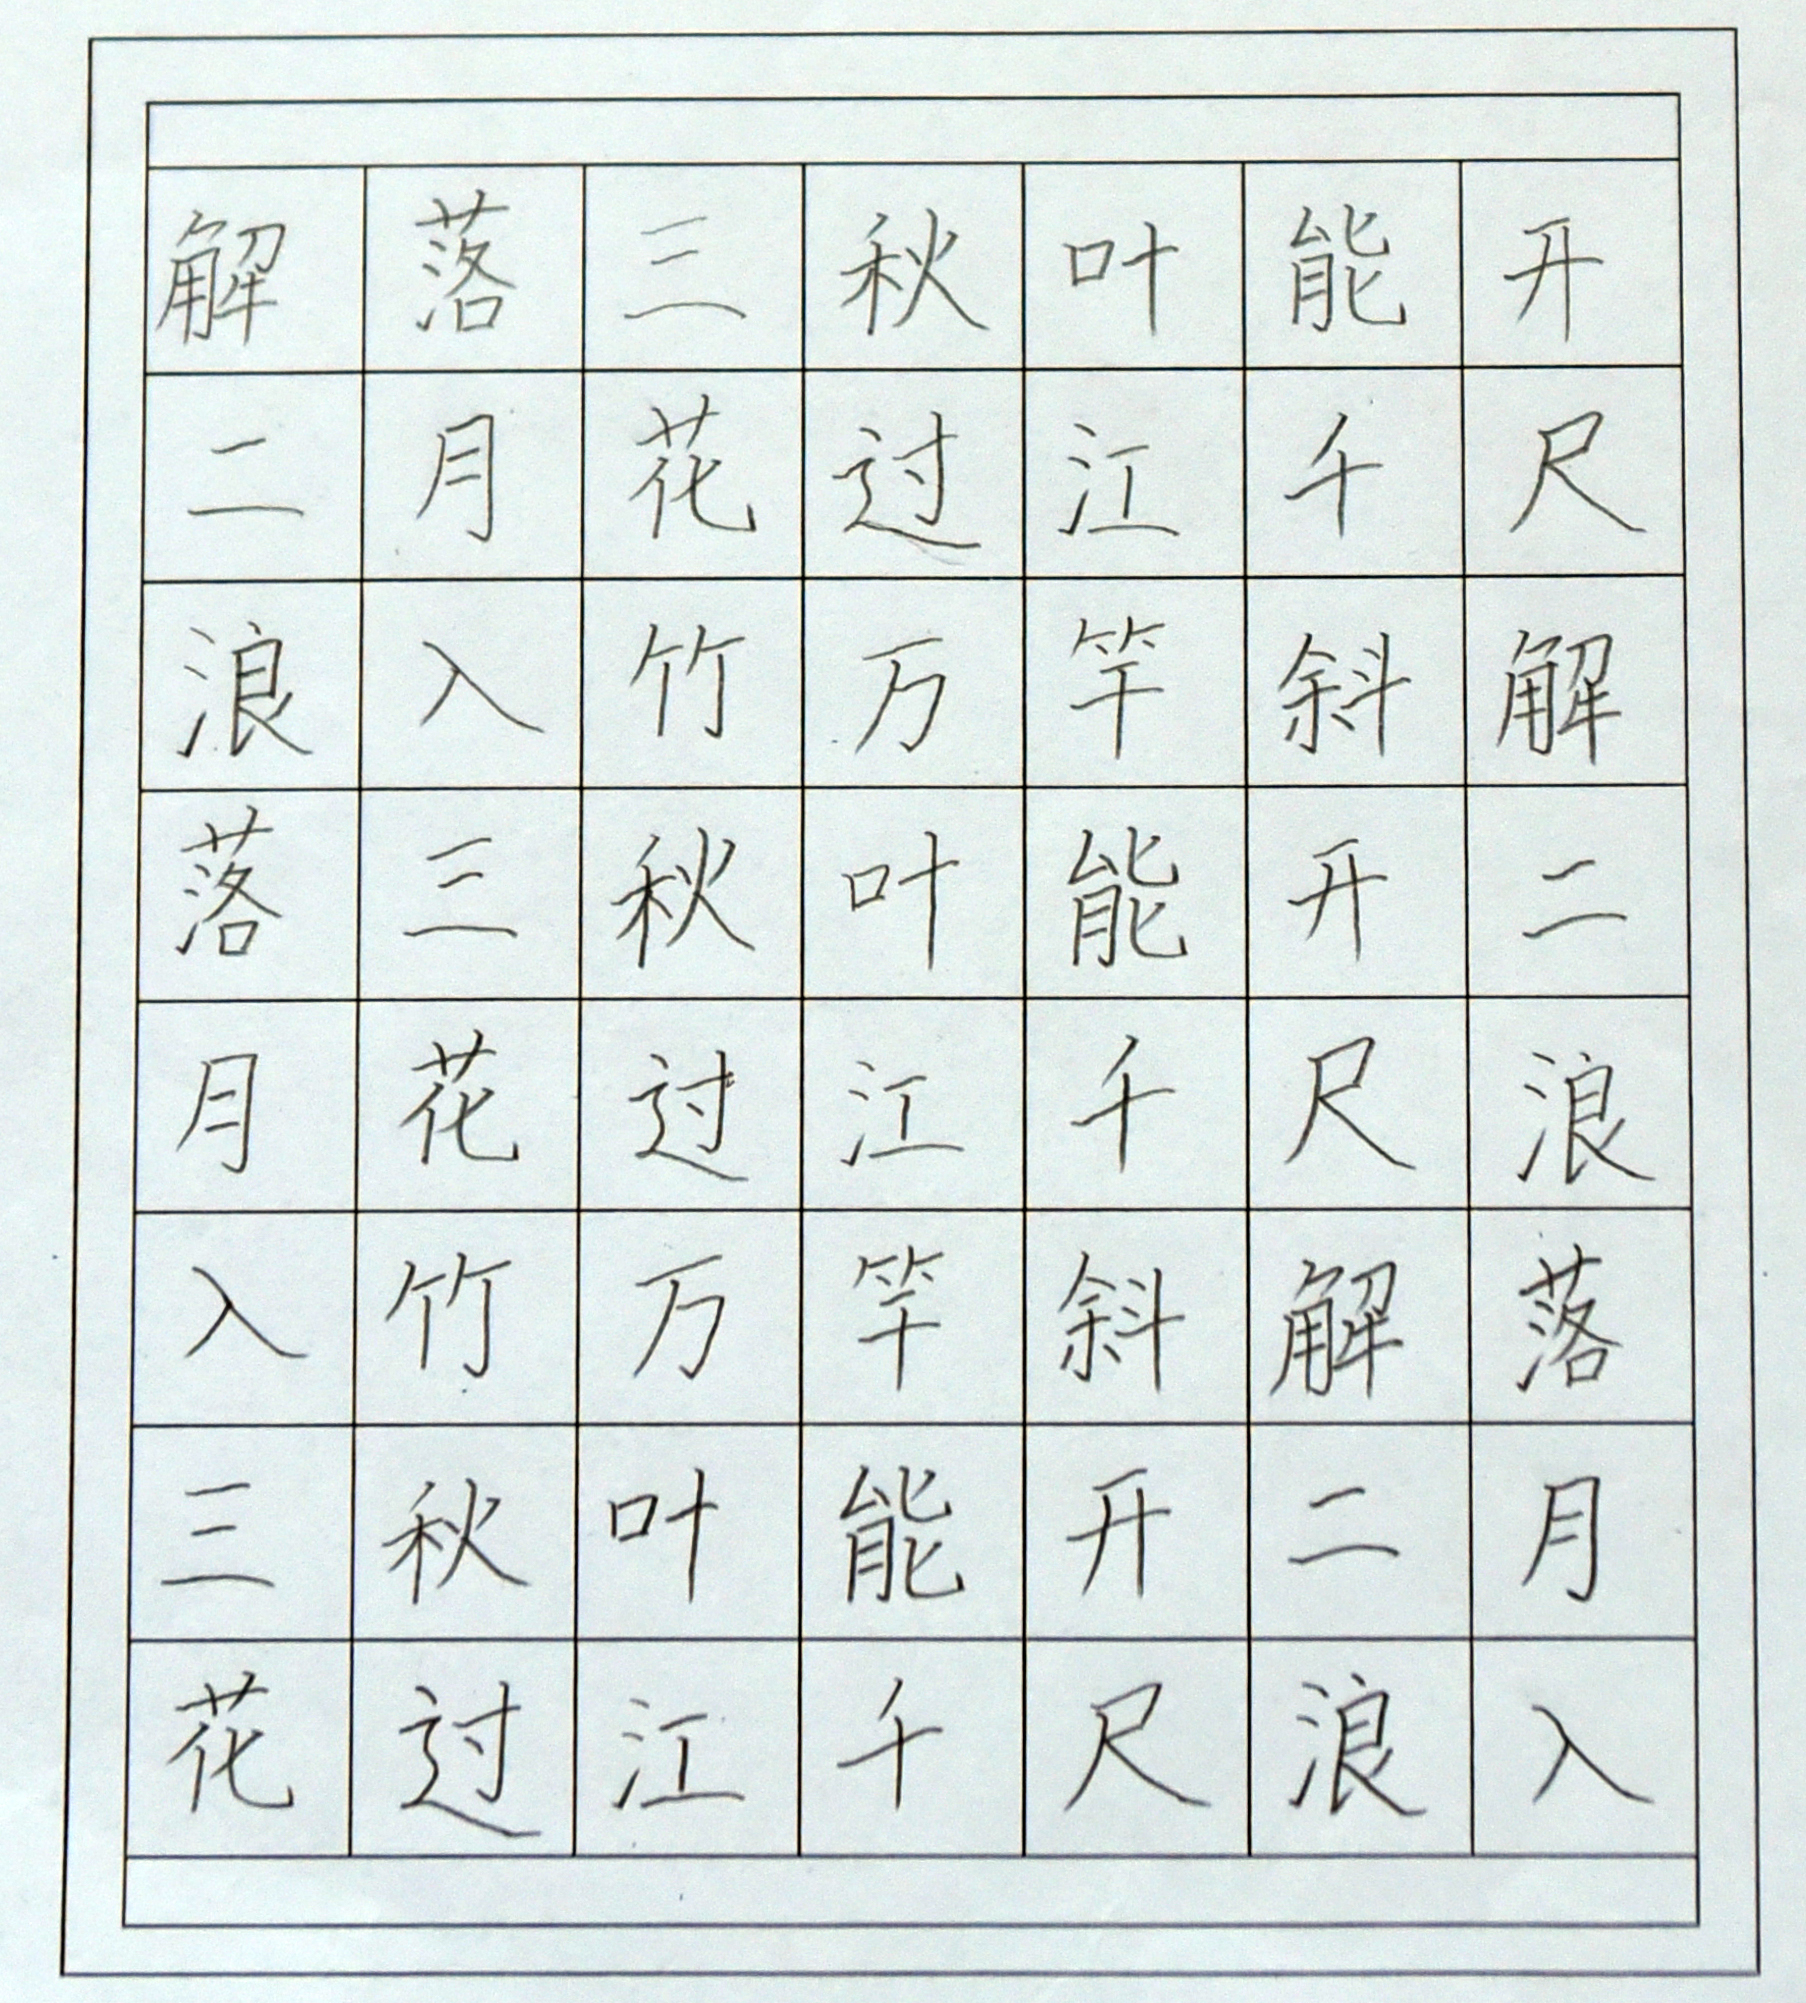 解落三秋叶能开
二月花过江千尺
浪入竹万竿斜解
落三秋叶能开二
月花过江千尺浪
入竹万竿斜解落
三秋叶能开二月
花过江千尺浪入